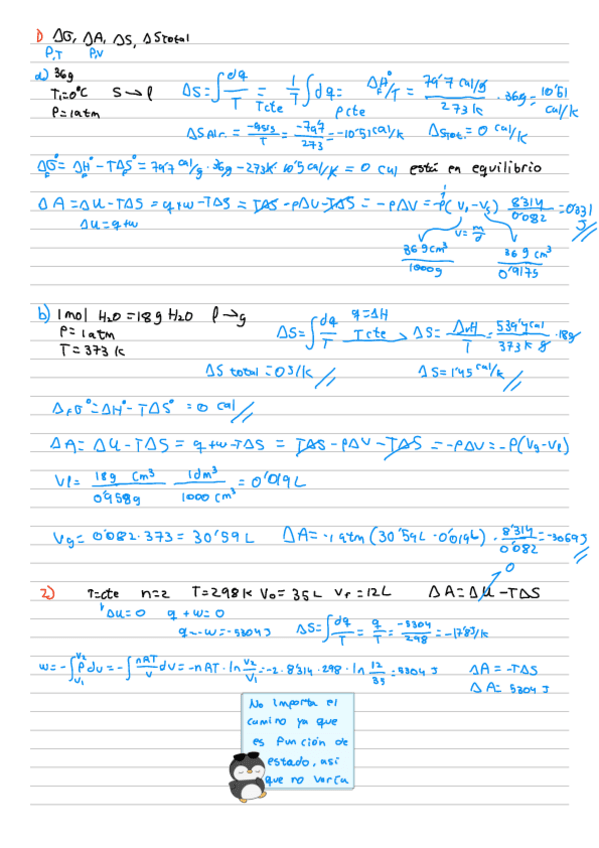 1) ΔG, ΔA, ΔS, ΔStotal
P,T P,V
a) 36g
T=0ºC S → l ΔS = ∫ dq/T = 1/T ∫ dq = ΔH/T = 79'7 cal/g / 273 k · 36g = 10'51 cal/k
P=1atm Tcte Pcte
ΔS alr. = = = -10'51 cal/k ΔStot. = 0 cal/k
ΔG° = ΔH° - TΔS° = 79'7 cal/g · 36g - 273k · 10'5 cal/k = 0 cal está en equilibrio
ΔA = ΔU - TΔS = q+w - TΔS = TΔS - PΔV - TΔS = -PΔV = -P( V - Vs) 8'314/0'082 = 0'331 J
ΔU = q+w V = m/d
36 g cm³ / 1000g 36 g cm³ / 0'9175
b) 1 mol H₂O = 18g H₂O l → g
P = 1atm ΔS = ∫ dq/T q=ΔH Tcte ΔS = ΔvH/T = 539'4 cal / 373 k g · 18g
T = 373 k
ΔS total = 0 J/k ΔS = 1'45 cal/k
ΔG° = ΔH° - TΔS° = 0 cal
ΔA = ΔU - TΔS = q+w - TΔS = TΔS - PΔV - TΔS = -PΔV = -P(Vg-Vl)
Vl = 18g cm³ / 0'958g 1dm³ / 1000 cm³ = 0'019 L
Vg = 0'082 · 373 = 30'59 L ΔA = -1 atm (30'59L - 0'019L) · 8'314/0'082 = -3069 J
0
2) T=cte n=2 T=298k V₀ = 35L Vf = 12L ΔA = ΔU - TΔS
ΔU=0 q+w=0
q=-w=-5304 J ΔS = ∫ dq/T = q/T = -5304/298 = -17'8 J/k
w = -∫ P dv = -∫ nRT/V dv = -nRT · ln V₂/V₁ = -2 · 8'314 · 298 · ln 12/35 = 5304 J ΔA = -TΔS
ΔA = 5304 J
No importa el
camino ya que
es función de
estado, así
que no varía